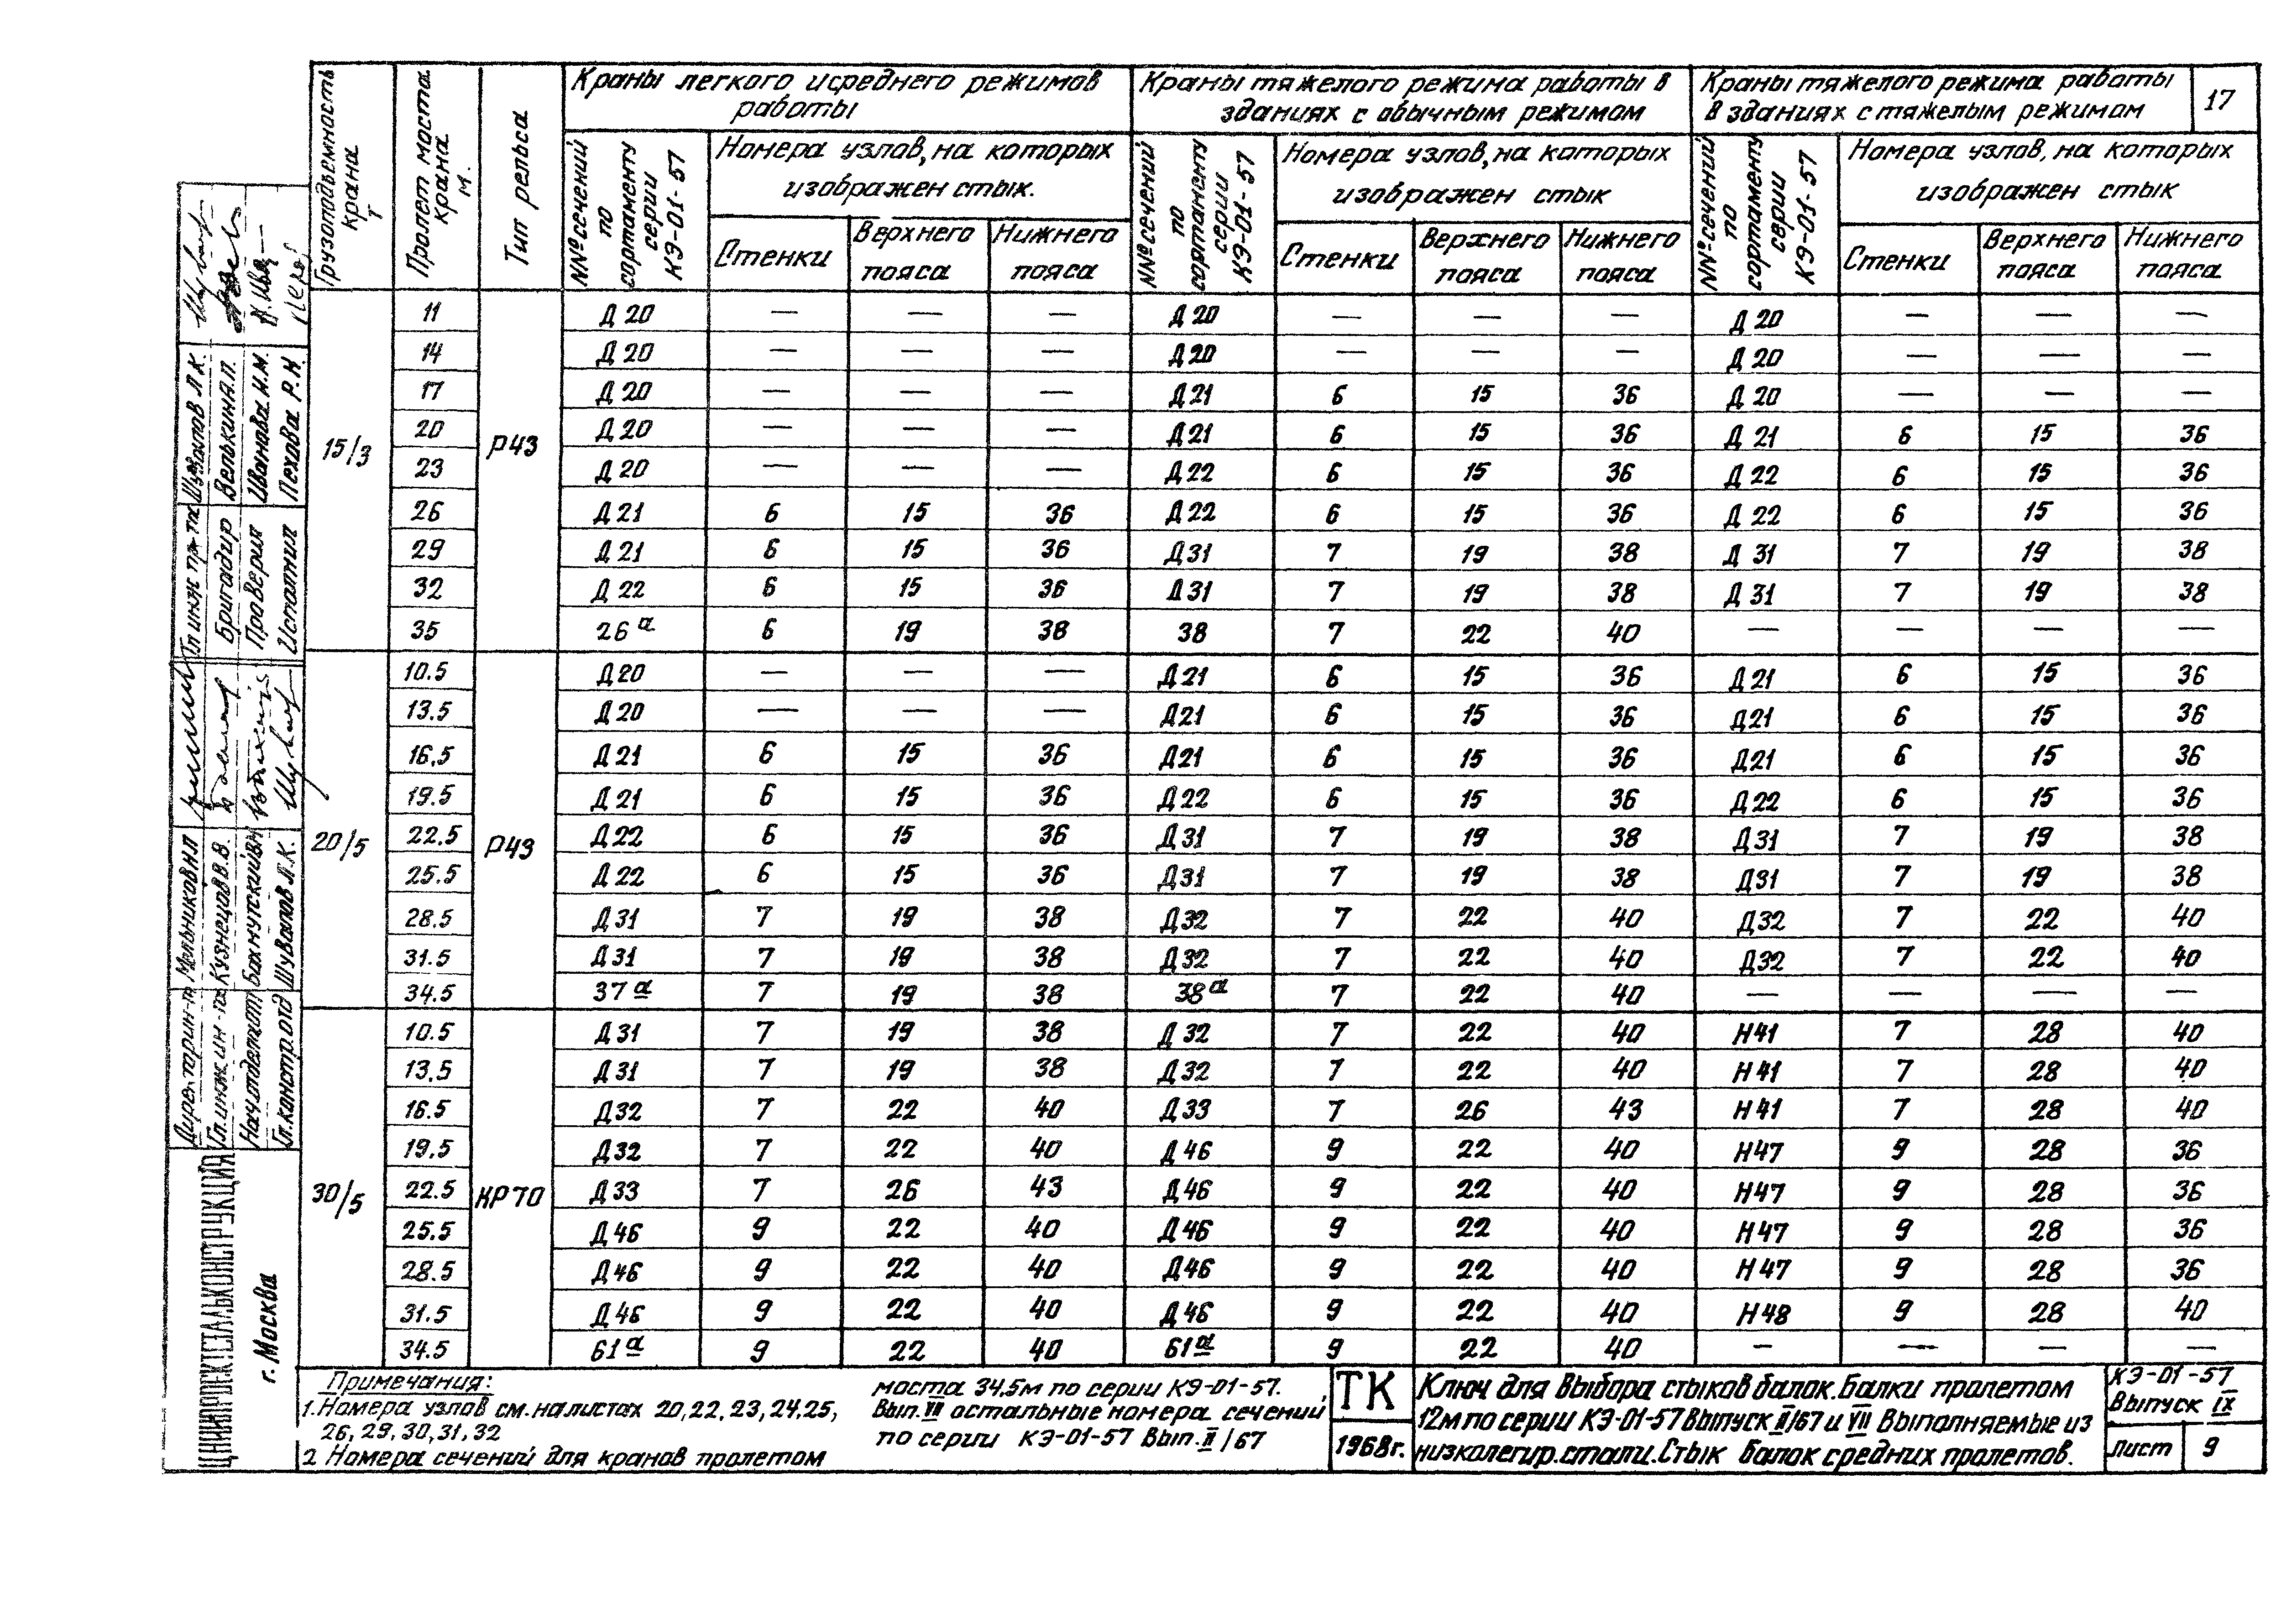 Грузоподъемность крана Т
Пролет моста крана м.
Тип рельса
Краны легкого и среднего режимов работы
Краны тяжелого режима работы в зданиях с обычным режимом
Краны тяжелого режима работы в зданиях с тяжелым режимом
17
NNº сечений по сортаменту серии КЭ-01-57
Номера узлов, на которых изображен стык.
NNº сечений по сортаменту серии КЭ-01-57
Номера узлов, на которых изображен стык
NNº сечений по сортаменту серии КЭ-01-57
Номера узлов, на которых изображен стык
Стенки Верхнего пояса Нижнего пояса
Стенки Верхнего пояса Нижнего пояса
Стенки Верхнего пояса Нижнего пояса
15/3 Р43
11 Д 20 — — — Д 20 — — — Д 20 — — —
14 Д 20 — — — Д20 — — — Д 20 — — —
17 Д 20 — — — Д21 6 15 36 Д 20 — — —
20 Д 20 — — — Д21 6 15 36 Д 21 6 15 36
23 Д 20 — — — Д22 6 15 36 Д 22 6 15 36
26 Д 21 6 15 36 Д 22 6 15 36 Д 22 6 15 36
29 Д 21 6 15 36 Д31 7 19 38 Д 31 7 19 38
32 Д 22 6 15 36 Д31 7 19 38 Д 31 7 19 38
35 26 а 6 19 38 38 7 22 40 — — — —
20/5 Р43
10.5 Д20 — — — Д21 6 15 36 Д21 6 15 36
13.5 Д20 — — — Д21 6 15 36 Д21 6 15 36
16,5 Д21 6 15 36 Д21 6 15 36 Д21 6 15 36
19.5 Д21 6 15 36 Д22 6 15 36 Д22 6 15 36
22.5 Д22 6 15 36 Д31 7 19 38 Д31 7 19 38
25.5 Д 22 6 15 36 Д31 7 19 38 Д31 7 19 38
28.5 Д31 7 19 38 Д32 7 22 40 Д32 7 22 40
31.5 Д31 7 19 38 Д32 7 22 40 Д32 7 22 40
34.5 37 а 7 19 38 38 а 7 22 40 — — — —
30/5 КР70
10.5 Д31 7 19 38 Д 32 7 22 40 Н41 7 28 40
13,5 Д31 7 19 38 Д32 7 22 40 Н 41 7 28 40
16.5 Д32 7 22 40 Д33 7 26 43 Н41 7 28 40
19,5 Д32 7 22 40 Д46 9 22 40 Н47 9 28 36
22.5 Д33 7 26 43 Д46 9 22 40 Н47 9 28 36
25.5 Д46 9 22 40 Д46 9 22 40 Н47 9 28 36
28.5 Д46 9 22 40 Д46 9 22 40 Н 47 9 28 36
31.5 Д46 9 22 40 Д46 9 22 40 Н48 9 28 40
34.5 61 а 9 22 40 61 а 9 22 40 — — — —
Примечания:
1. Номера узлов см. на листах 20,22,23,24,25,
26,29,30,31,32
2 Номера сечений для кранов пролетом
моста 34,5м по серии КЭ-01-57.
Вып. VII остальные номера сечений
по серии КЭ-01-57 Вып. II/67
ТК
1968г.
Ключ для выбора стыков балок. Балки пролетом
12м по серии КЭ-01-57 Выпуск II/67 и VII Выполняемые из
низколегир. стали. Стык балок средних пролетов.
КЭ-01-57
Выпуск IX
Лист 9
Гл инж пр-та Шувалов Л.К.
Бригадир Велькин А.П.
Проверил Иванова И.М.
Исполнил Пехова Р.Н.
Мельников Н.П
Гл. инж ин-та Кузнецов В.В.
Бахмутский В.М
Гл. констр. отд Шувалов Л.К.
ЦНИИПРОЕКТСТАЛЬКОНСТРУКЦИЯ
г. Москва